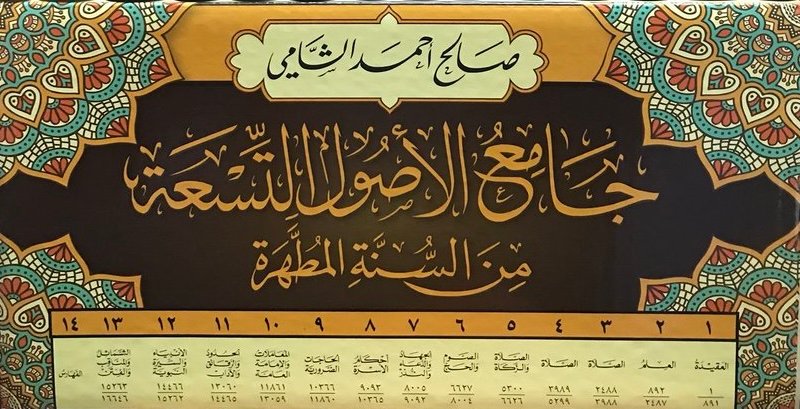 صالح أحمد الشامي
جَامِعُ الأُصُولِ التِّسْعَةِ
مِنَ السُّنَّةِ المُطَهَّرَةِ
١ ٢ ٣ ٤ ٥ ٦ ٧ ٨ ٩ ١٠ ١١ ١٢ ١٣ ١٤
العقيدة العلم الصلاة الصلاة الصلاة والزكاة الصوم والحج الجهاد والنذر أحكام الأسرة الحاجات الضرورية المعاملات والإمامة العامة الحدود والرقائق والآداب الأنبياء والسيرة النبوية الشمائل والمناقب والفتن الفهارس
١ ٨٩٢ ٢٤٨٨ ٣٩٨٩ ٥٣٠٠ ٦٦٢٧ ٨٠٠٥ ٩٠٩٣ ١٠٣٦٦ ١١٨٦١ ١٣٠٦٠ ١٤٤٦٦ ١٥٢٦٣
٨٩١ ٢٤٨٧ ٣٩٨٨ ٥٢٩٩ ٦٦٢٦ ٨٠٠٤ ٩٠٩٢ ١٠٣٦٥ ١١٨٦٠ ١٣٠٥٩ ١٤٤٦٥ ١٥٢٦٢ ١٦٦٤٦